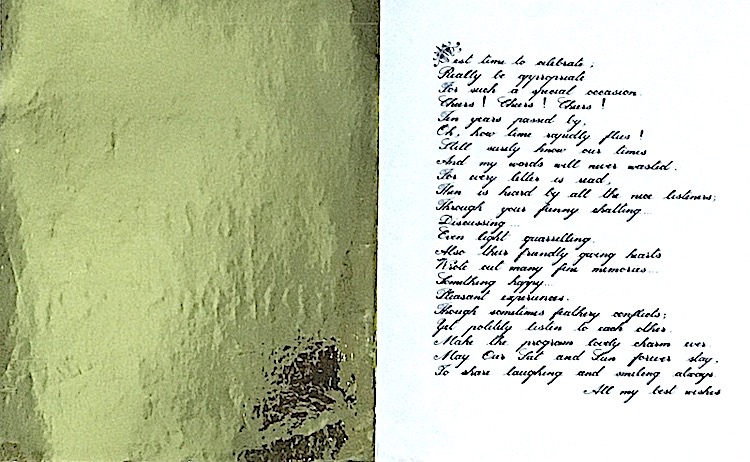 Best time to celebrate;
Really be appropriate
For such a special occasion.
Cheers! Cheers! Cheers!
Ten years passed by,
Oh, how time rapidly flies!
Still surely know our times
And my words will never wasted.
For every letter is read,
Then is heard by all the nice listeners;
Through your funny chatting...
Discussing...
Even light quarrelling.
Also their friendly giving hearts
Wrote out many fine memories...
Something happy...
Pleasant experiences.
Though sometimes feathery conflicts;
Yet politely listen to each other.
Make the program lovely charm ever
May Our Sat and Sun forever stay,
To share laughing and smiling always.
All my best wishes